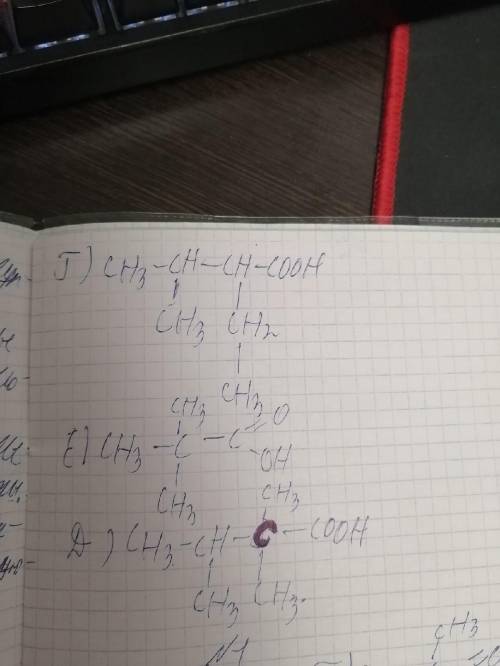 Г) CH3-CH-CH-COOH
CH3 CH2
CH3
CH3
E) CH3-C-C=O
OH
CH3
CH3
Д) CH3-CH-C-COOH
CH3 CH3.
CH3